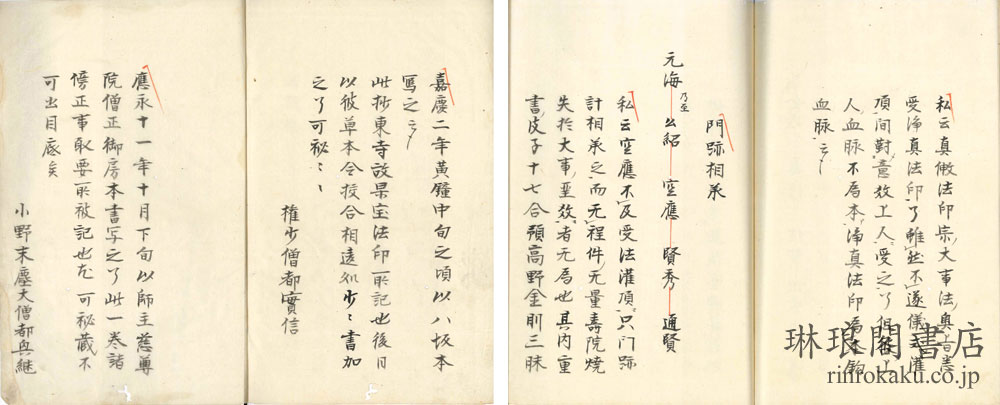 私云真倣法印宗大事法奥旨悉
受浄真法印了雖然不遂儀式灌
頂間対意教上人受之了但後上
人血脉不為本浄真法印為本釣
血脉云々
門跡相承
元海 乃至 公紹 空應 賢秀 通賢
私云空應不及受法灌頂只門跡
計相承之而无程件无量寿院焼
失於大事聖教者无為也其内重
書皮子十七合預高野金剛三昧
嘉慶二年黄鐘中旬之頃以八坂本
写之云々
此抄東寺故杲宝法印所記也後日
以彼草本令校合相違処少々書加
之了可秘々々
権少僧都實信
應永十一年十月下旬以師主慈尊
院僧正御房本書写之了此一巻諸
僧正事取要所被記也尤可秘蔵不
可出目底矣
小野末塵大僧都興継
琳琅閣書店
rinrokaku.co.jp